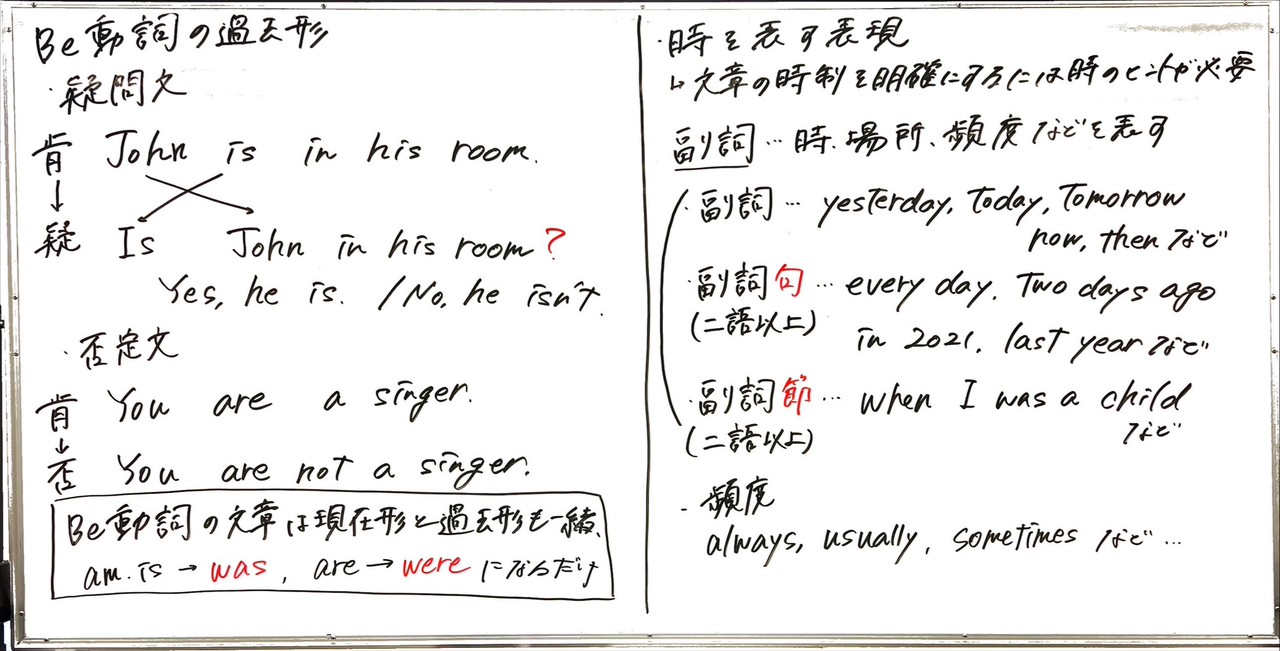 Be動詞の過去形
・疑問文
肯 John is in his room.
↓
疑 Is John in his room?
Yes, he is. / No, he isn't.
・否定文
肯 You are a singer.
↓
否 You are not a singer.
Be動詞の文章は現在形と過去形も一緒、
am. is → was, are → were になるだけ
・時を表す表現
↳文章の時制を明確にするには時のヒントが必要
副詞…時、場所、頻度などを表す
・副詞… yesterday, today, tomorrow
now, then など
・副詞句… every day. Two days ago
(二語以上) in 2021. last year など
・副詞節… when I was a child
(二語以上) など
・頻度
always, usually, sometimes など…